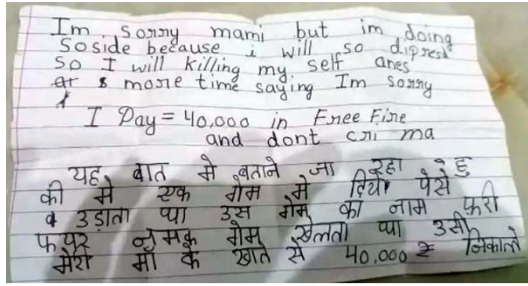 Im sorry mami but im doing
Soside because i will so dipresd
So I will killing my self anes
more time saying Im sorry
I Pay = 40,000 in Free Fire
and dont cri ma
यह बात मे बताने जा रहा हु
की मे एक गेम मे दिया पेसे
उड़ाता था उस गेम का नाम फ़री
फ़यर नमक गेम खेलता था उसी
मेरी माँ के खाते से 40,000 ₹ निकाले